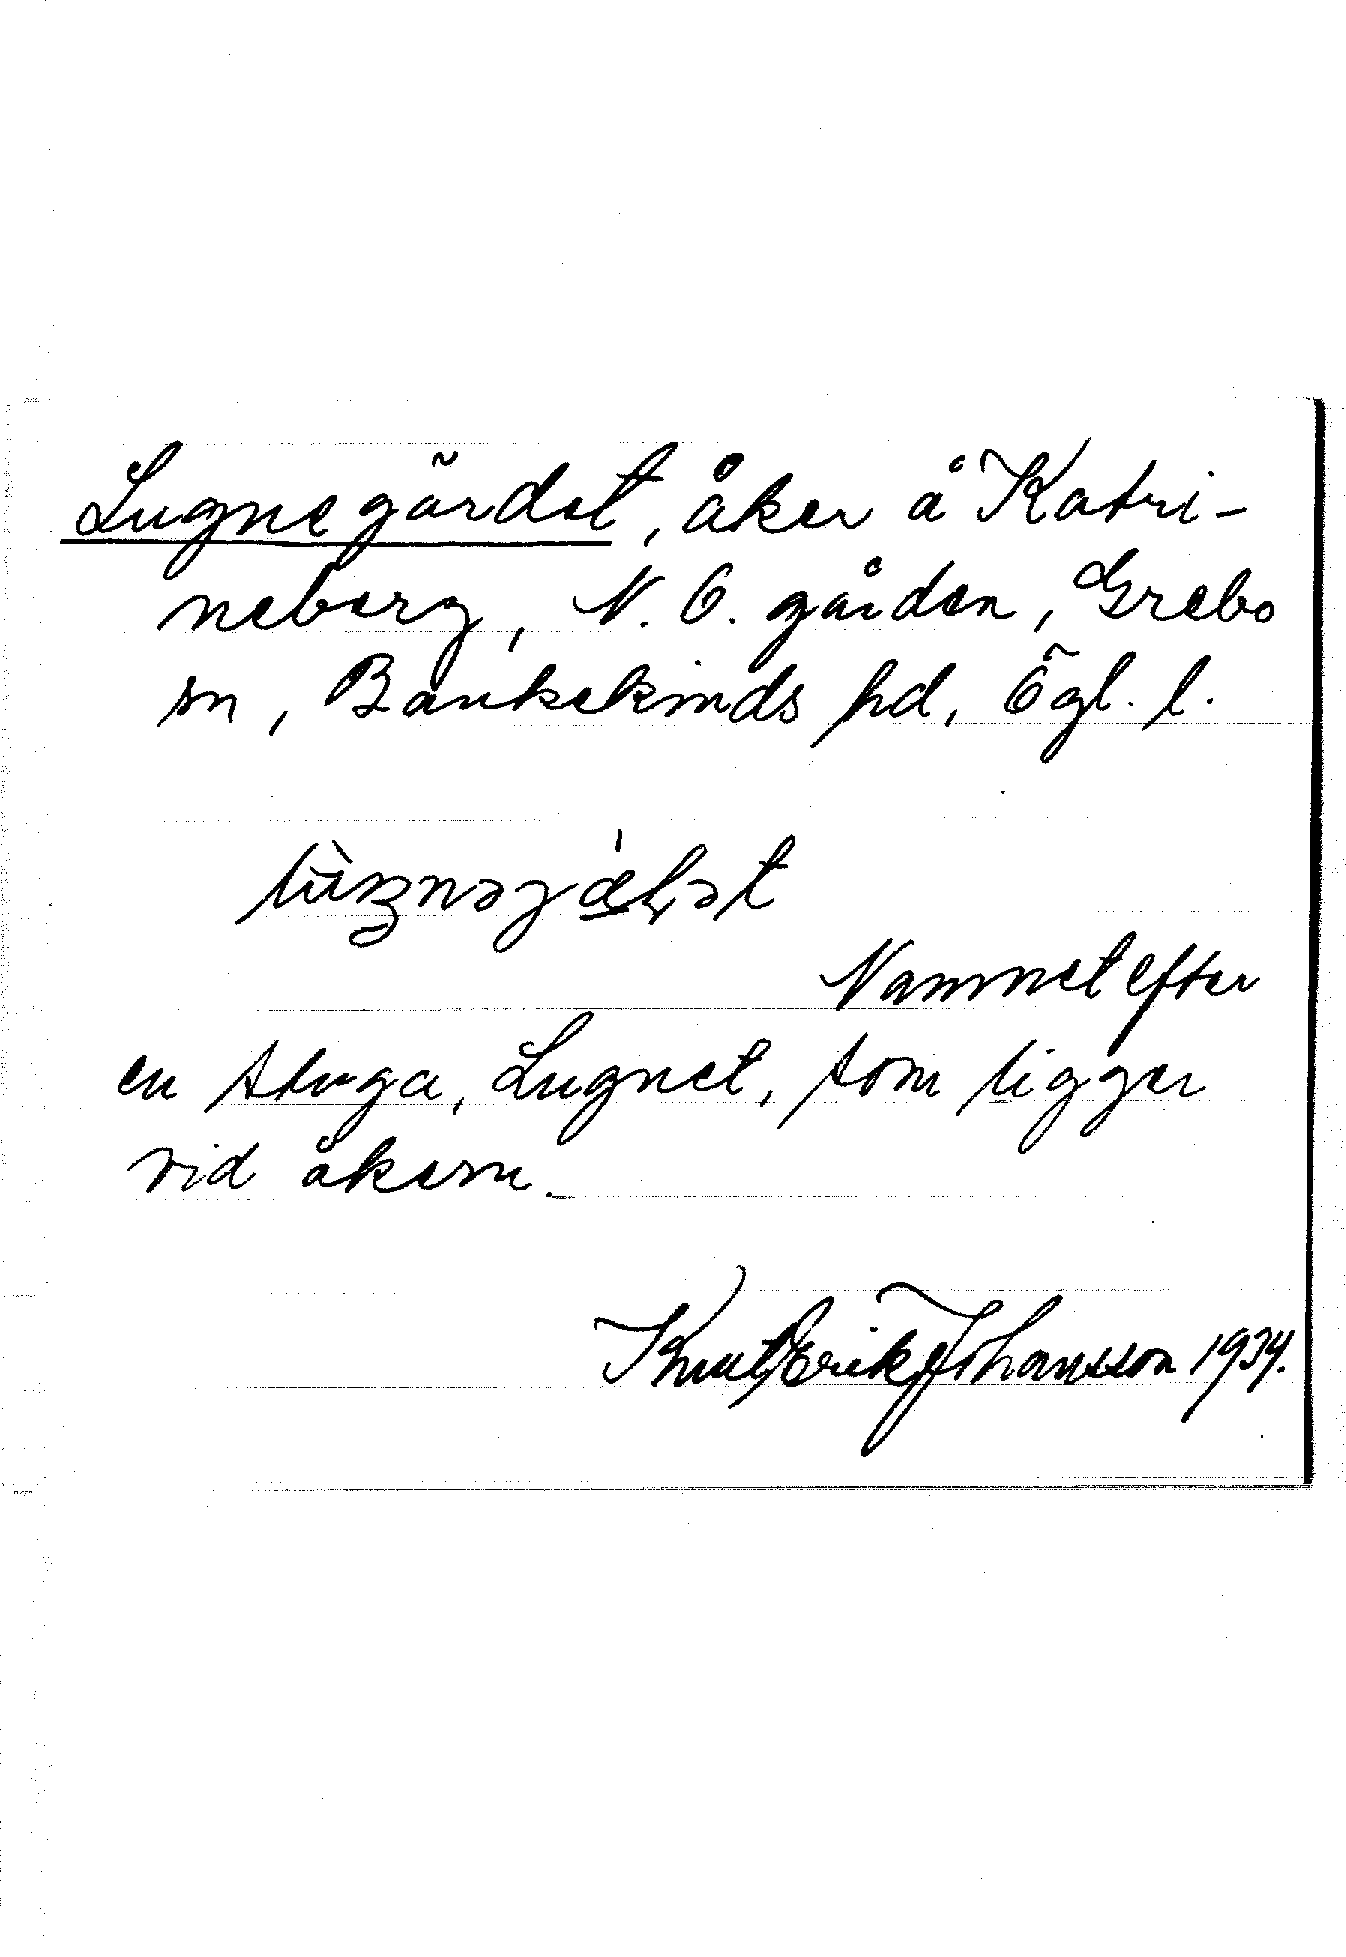 Lugnegärdet, åker å Katri-
neberg, N. O. gården, Grebo
sn, Bankekinds hd, Ögl. l.
Namnet efter
en stuga, Lugnet, som ligger
vid åkern.
Knut Erik Johansson 1934.